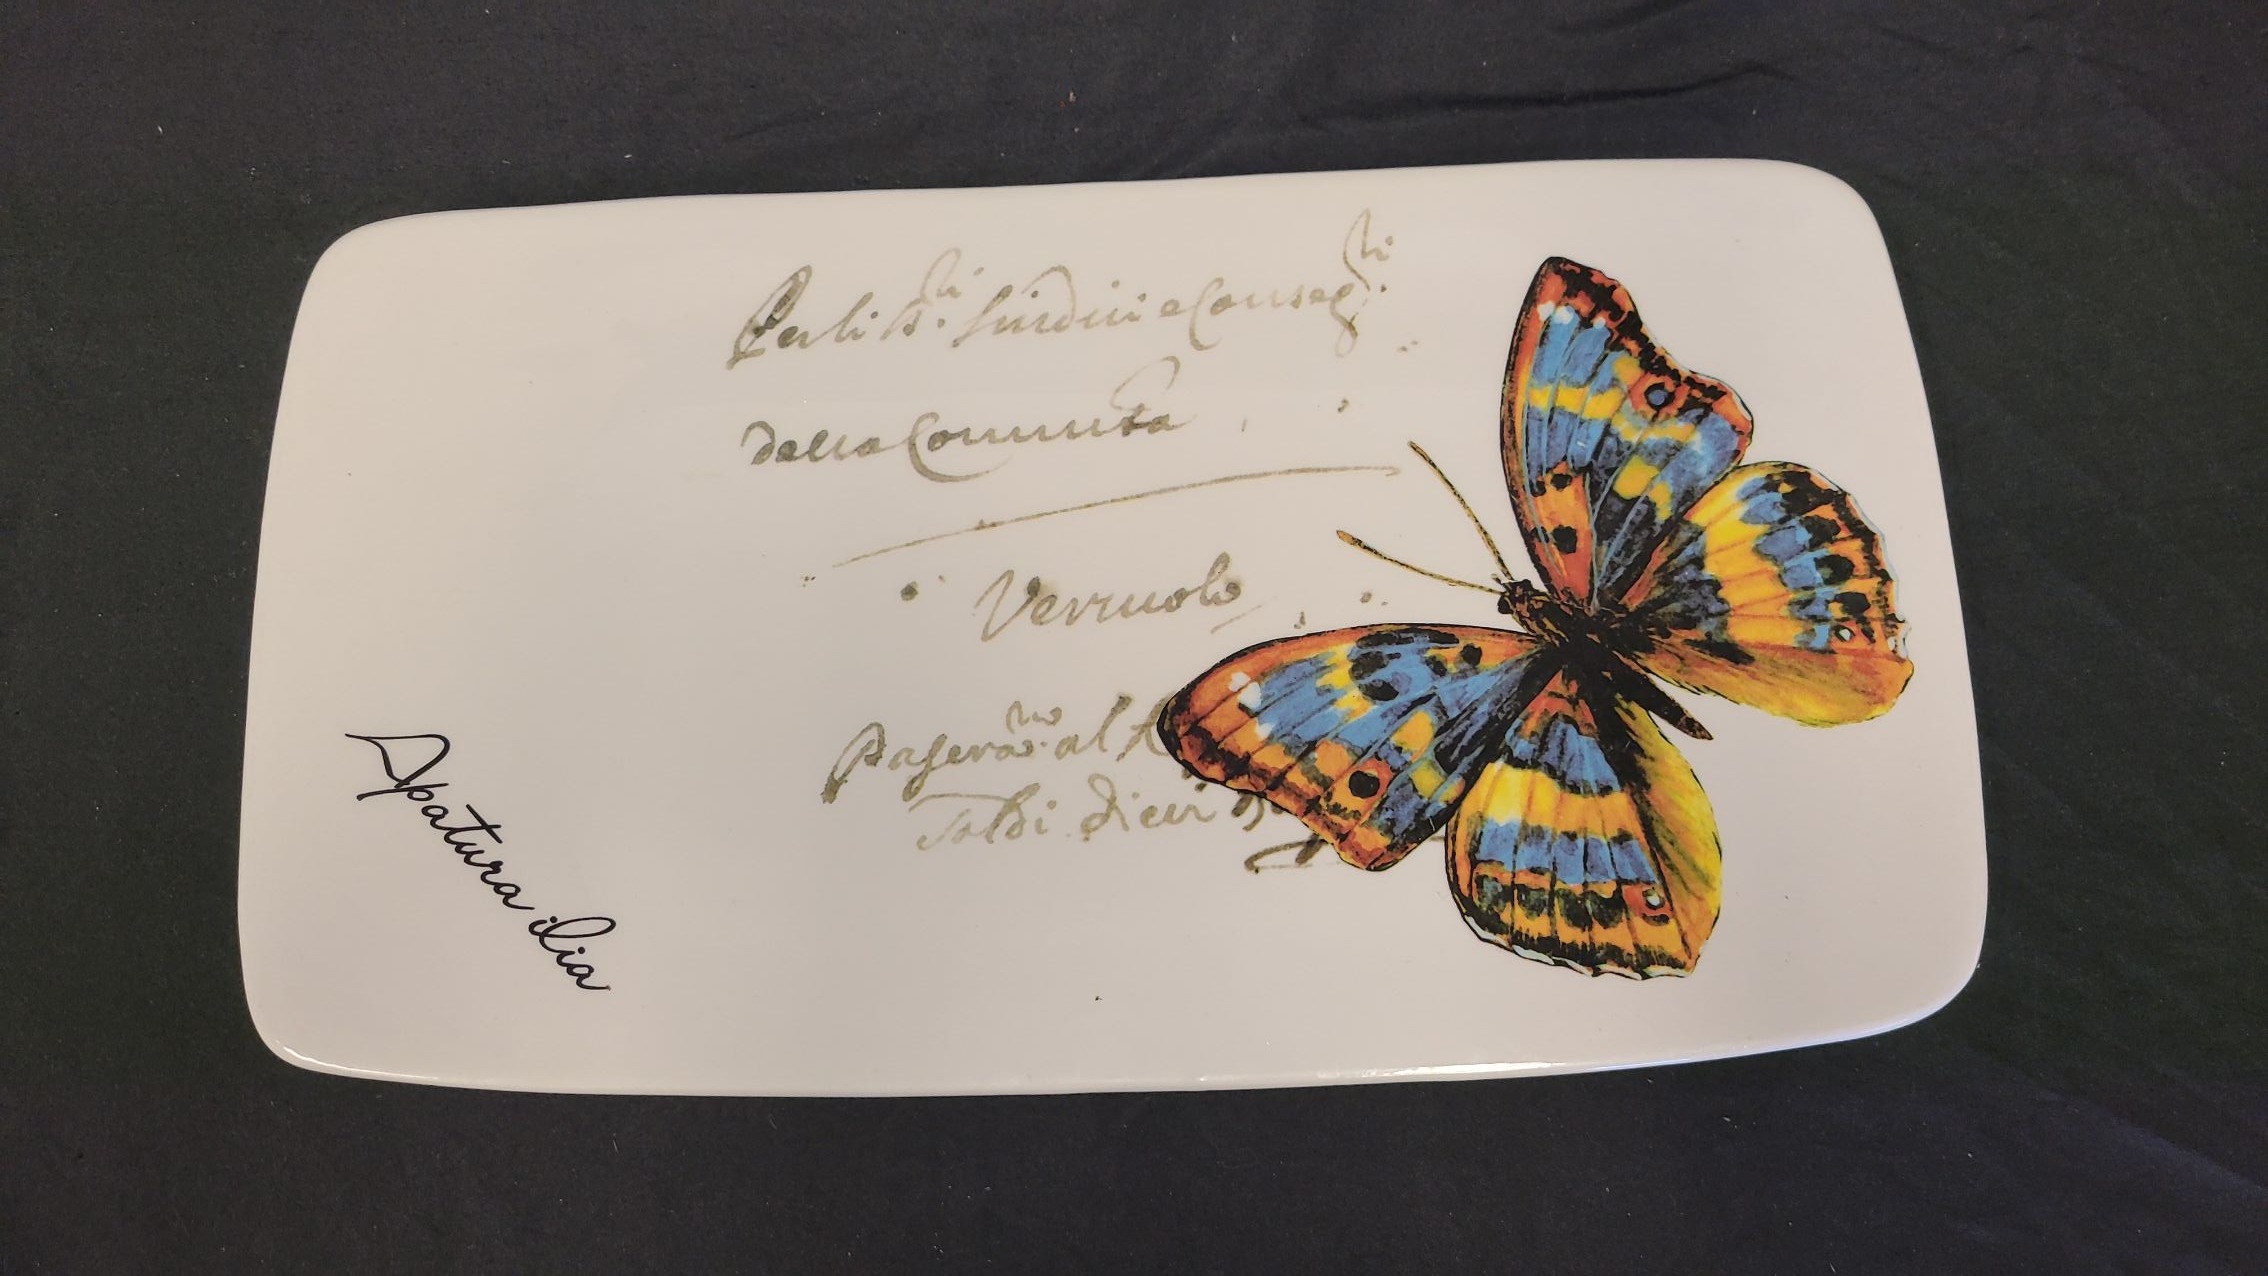 Perli S.ri Sindici e Conseg.ri
della Comunita
Verzuolo
Pagerà al
soldi dieci
Apatura ilia